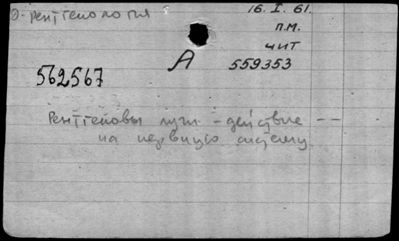 Э-рентгенология
16. I. 61.
п.м.
чит
А 559353
562567
Рентгеновы лучи - действие --
на нервную систему.